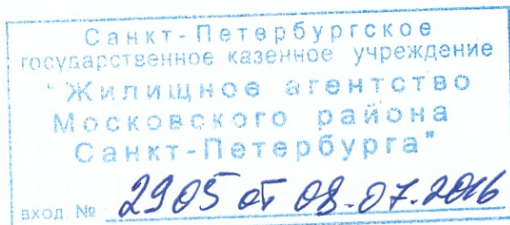 Санкт-Петербургское
государственное казенное учреждение
"Жилищное агентство
Московского района
Санкт-Петербурга"
вход. № 2905 от 08.07.2016